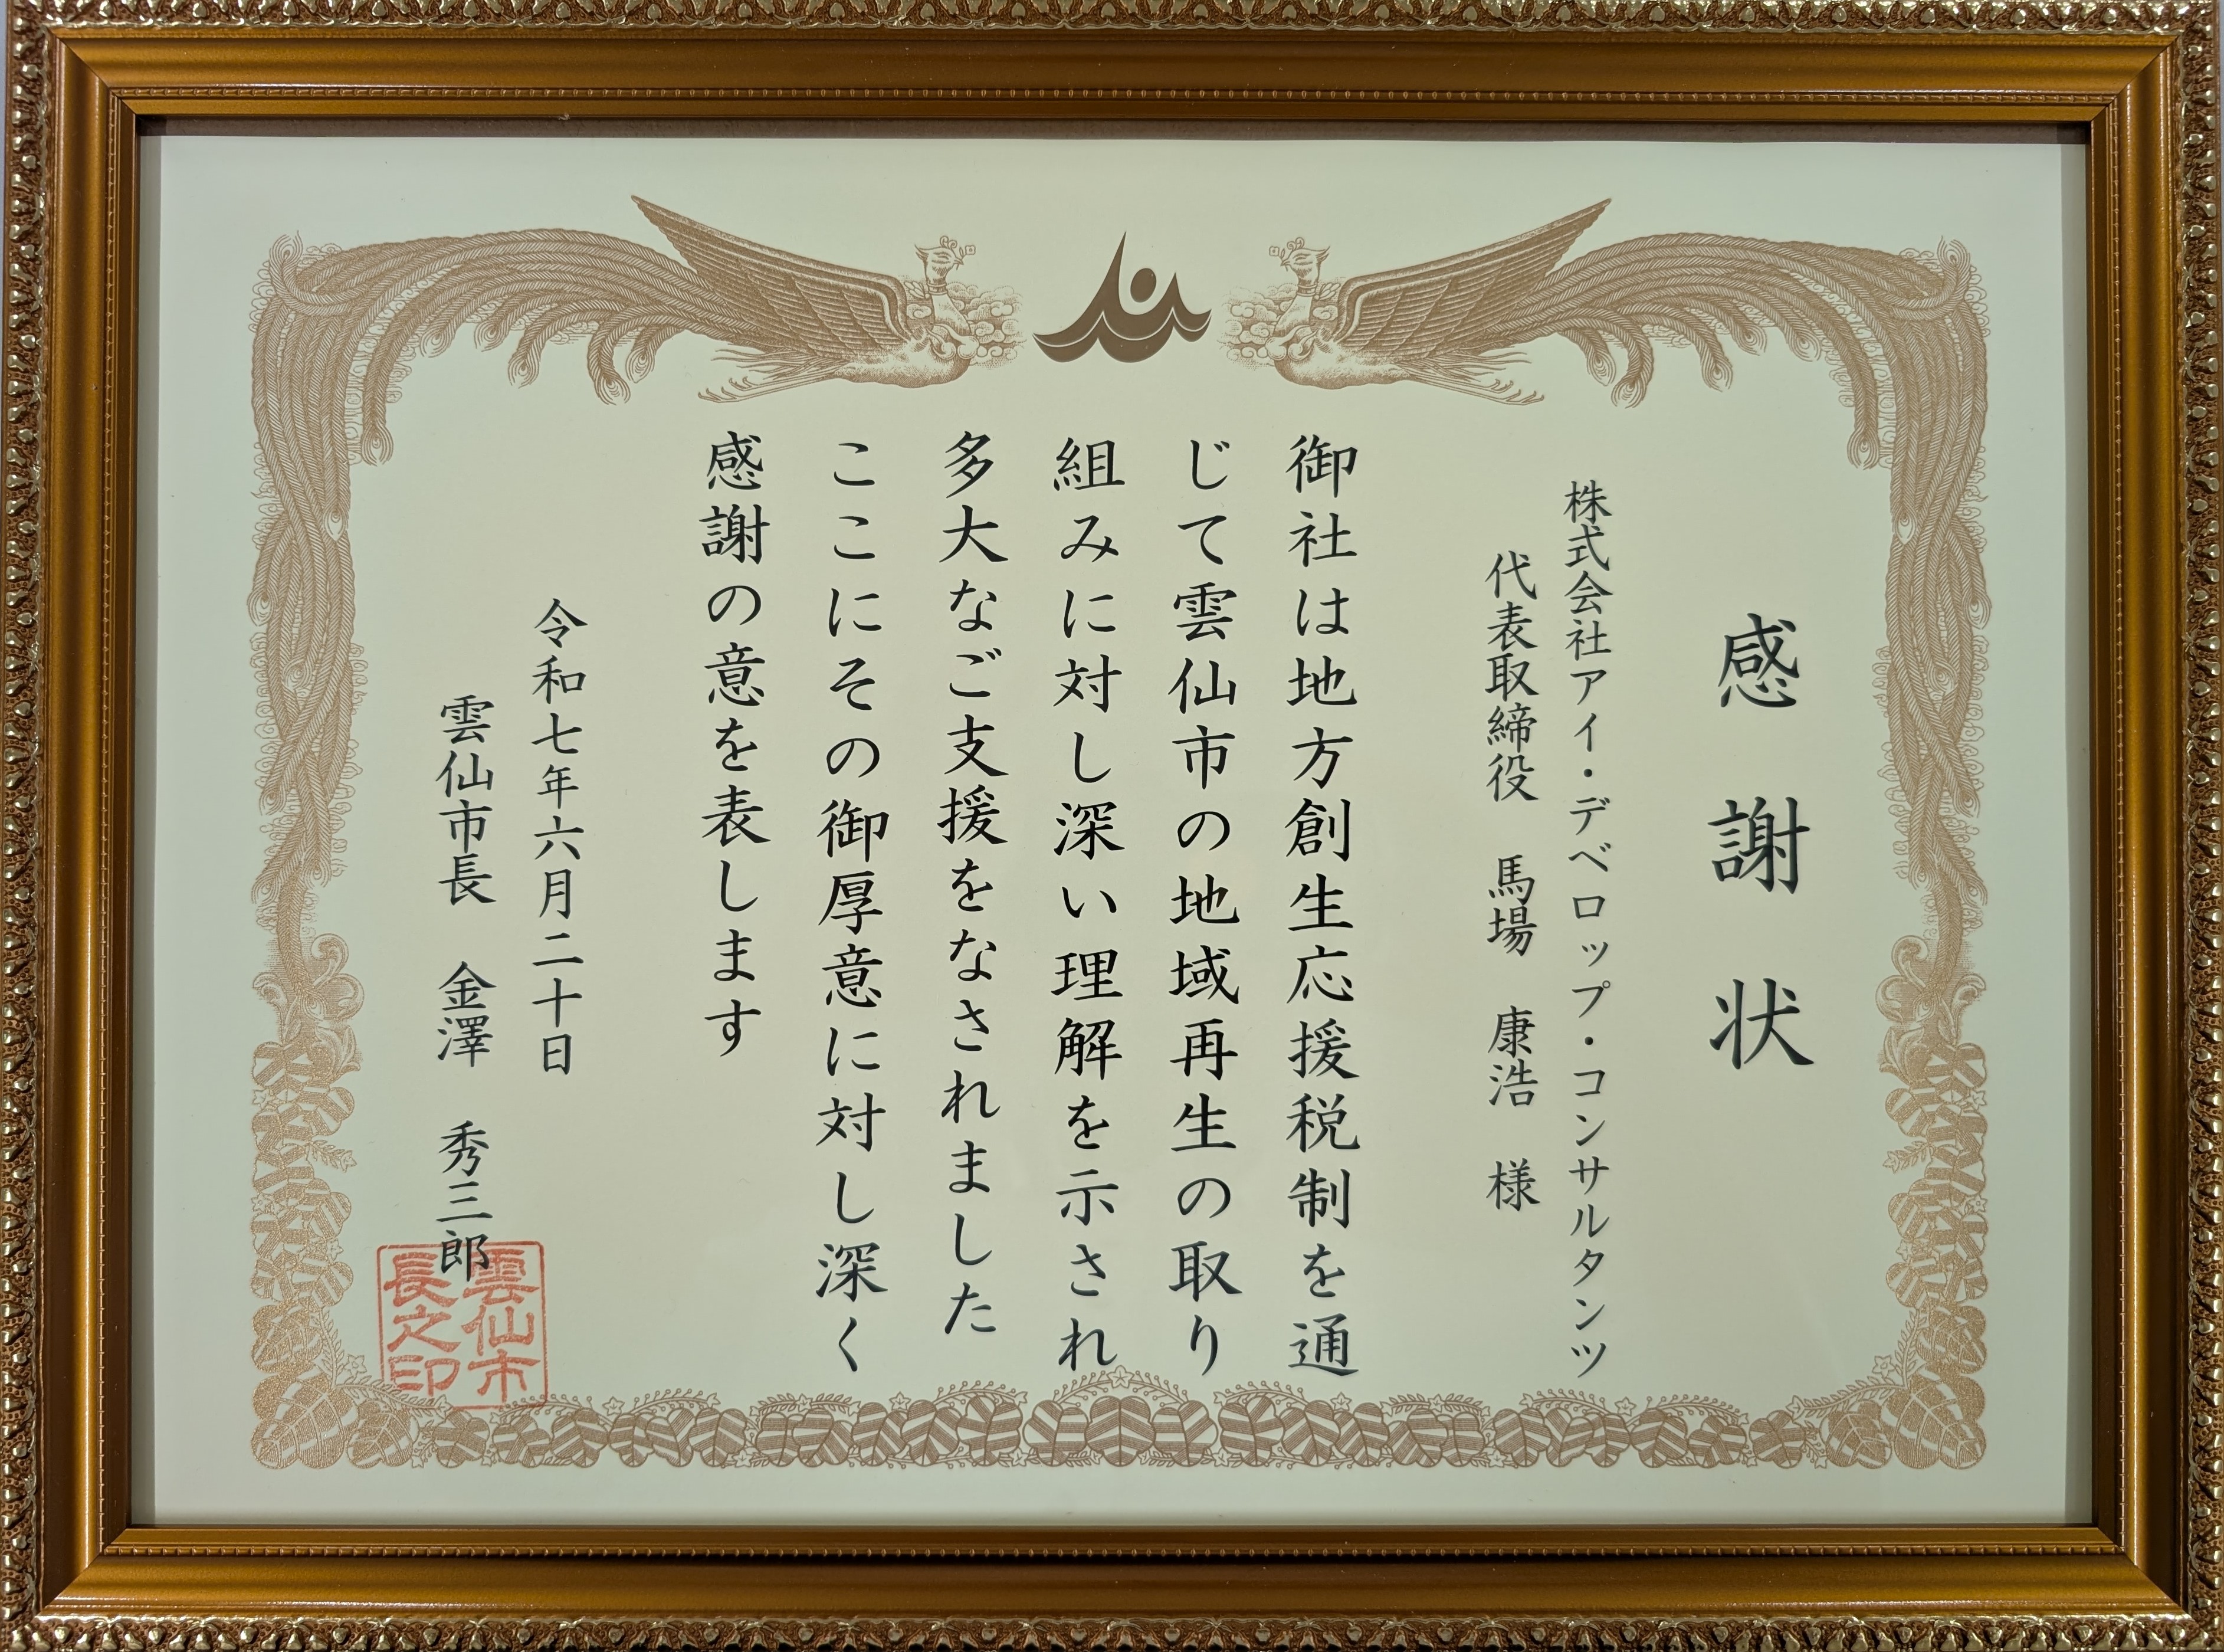 感謝状
株式会社アイ・デベロップ・コンサルタンツ
代表取締役 馬場 康浩 様
御社は地方創生応援税制を通
じて雲仙市の地域再生の取り
組みに対し深い理解を示され
多大なご支援をなされました
ここにその御厚意に対し深く
感謝の意を表します
令和七年六月二十日
雲仙市長 金澤 秀三郎
雲仙市
長之印